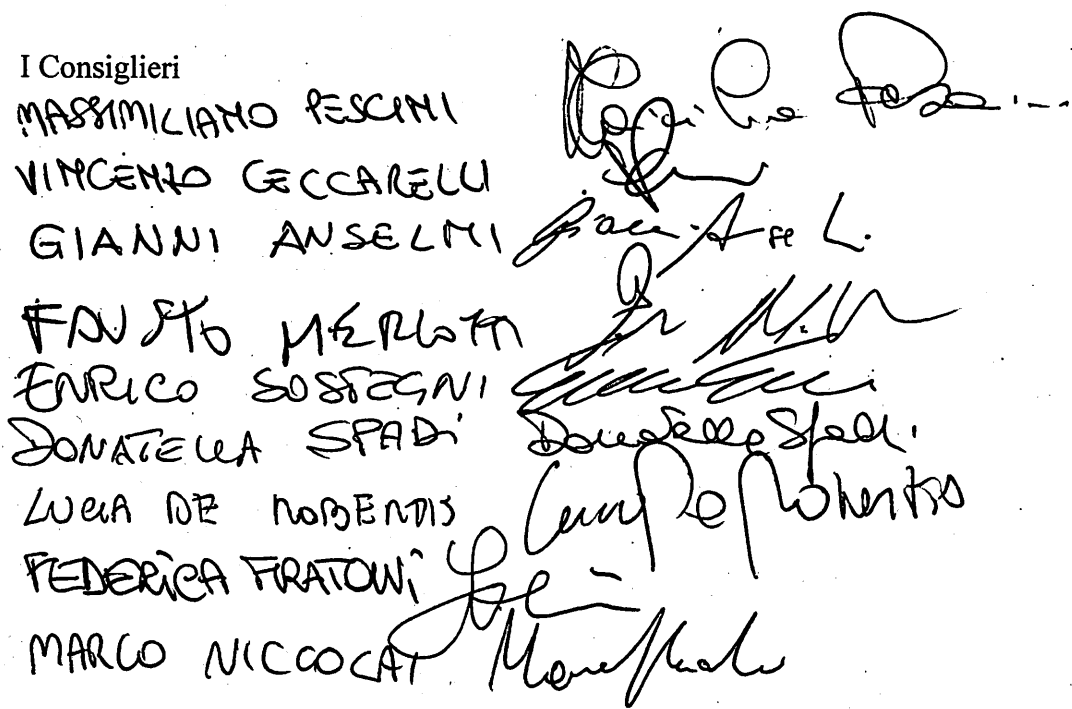 I Consiglieri
MASSIMILIANO PESCINI
VINCENZO CECCARELLI
GIANNI ANSELMI
FAUSTO MERLOTTI
ENRICO SOSTEGNI
DONATELLA SPADi Donatella Spadi
LUCIA DE ROBERTIS Lucia De Robertis
FEDERiCA FRATONi
MARCO NICCOLAI